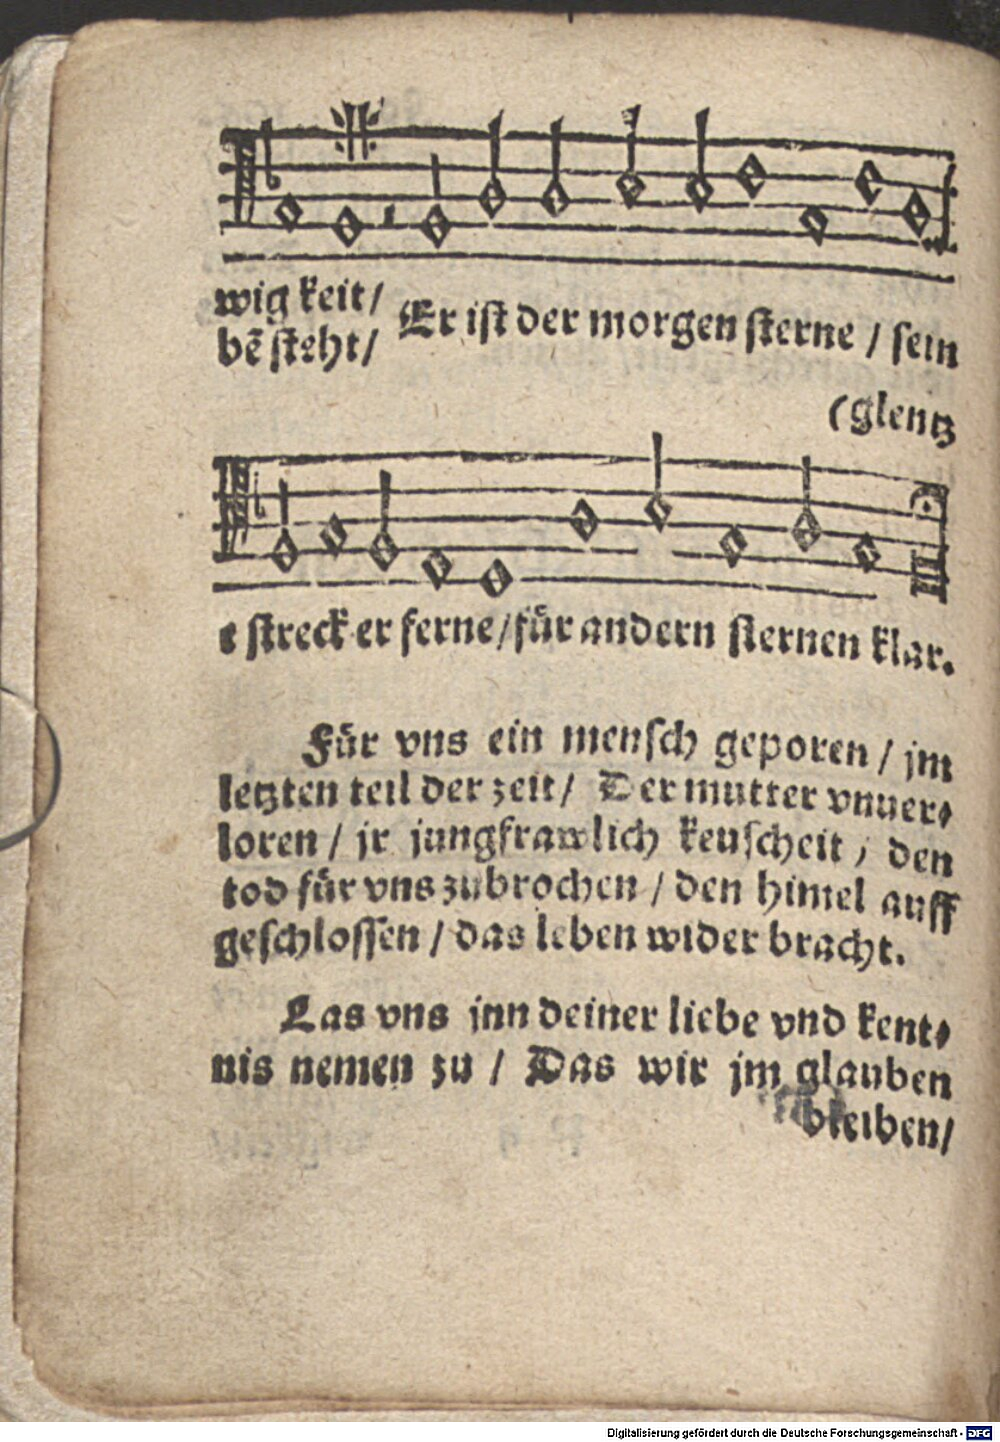 wig keit/
bẽ steht/ Er ist der morgen sterne / sein
(glentz
e streck er ferne/für andern sternen klar.
Für vns ein mensch geporen / jm
letzten teil der zeit/ Der mutter vnuer⸗
loren / jr jungfrawlich keuscheit / den
tod für vns zubrochen / den himel auff
geschlossen / das leben wider bracht.
Las vns jnn deiner liebe vnd kent⸗
nis nemen zu / Das wir jm glauben
bleiben/
Digitalisierung gefördert durch die Deutsche Forschungsgemeinschaft - DFG